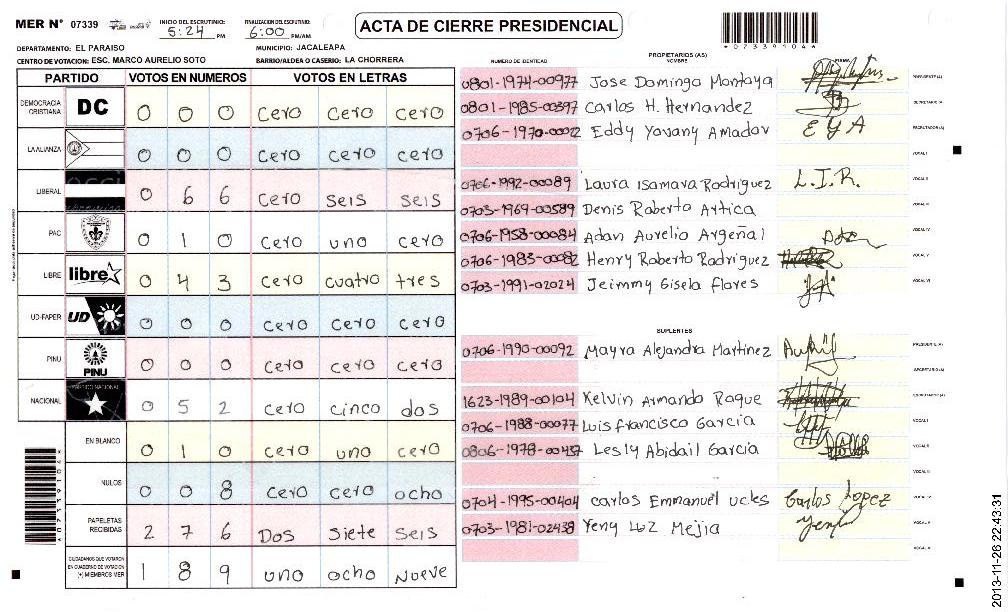 MER Nº 07339
INICIO DEL ESCRUTINIO: 5:24 PM
FINALIZACION DEL ESCRUTINIO: 6:00 PM/AM
ACTA DE CIERRE PRESIDENCIAL
*07339104*
DEPARTAMENTO: EL PARAISO
MUNICIPIO: JACALEAPA
CENTRO DE VOTACION: ESC. MARCO AURELIO SOTO
BARRIO/ALDEA O CASERIO: LA CHORRERA
PARTIDO VOTOS EN NUMEROS VOTOS EN LETRAS
DEMOCRACIA CRISTIANA DC 0 0 0 cero cero cero
LA ALIANZA 0 0 0 cero cero cero
LIBERAL 0 6 6 cero seis seis
PAC 0 1 0 cero uno cero
LIBRE libre 0 4 3 cero cuatro tres
UD-FAPER UD 0 0 0 cero cero cero
PINU PINU 0 0 0 cero cero cero
NACIONAL PARTIDO NACIONAL 0 5 2 cero cinco dos
EN BLANCO 0 1 0 cero uno cero
NULOS 0 0 8 cero cero ocho
PAPELETAS RECIBIDAS 2 7 6 Dos siete seis
CIUDADANOS QUE VOTARON EN CUADERNO DE VOTACION (+) MIEMBROS MER 1 8 9 uno ocho Nueve
PROPIETARIOS (AS)
NUMERO DE IDENTIDAD NOMBRE FIRMA
0801-1974-00977 Jose Domingo Montoya PRESIDENTE (A)
0801-1985-00397 Carlos H. Hernandez SECRETARIO (A)
0706-1970-00012 Eddy Yovany Amador E Y A ESCRUTADOR (A)
VOCAL I
0706-1992-00089 Laura Isamara Rodriguez L.I.R. VOCAL II
0703-1969-00589 Denis Roberto Artica VOCAL III
0706-1958-00084 Adan Aurelio Argeñal VOCAL IV
0706-1983-00082 Henry Roberto Rodriguez VOCAL V
0703-1991-02024 Jeimmy Gisela flores VOCAL VI
SUPLENTES
0706-1990-00092 Mayra Alejandra Martinez PRESIDENTE (A)
SECRETARIO (A)
1623-1989-00104 Kelvin Armando Roque ESCRUTADOR (A)
0706-1988-00077 Luis francisco Garcia VOCAL I
0806-1978-00437 Lesly Abidail Garcia VOCAL II
VOCAL III
0704-1995-00404 Carlos Emmanuel ucles Carlos Lopez VOCAL IV
0703-1981-02438 Yeny Luz Mejia Yeny VOCAL V
VOCAL VI
2013-11-26 22:43:31